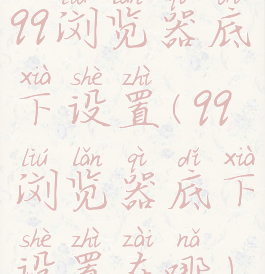 liú lǎn qì dǐ
99浏览器底
xià shè zhì
下设置(99
liú lǎn qì dǐ xià
浏览器底下
shè zhì zài nǎ
设置在哪)